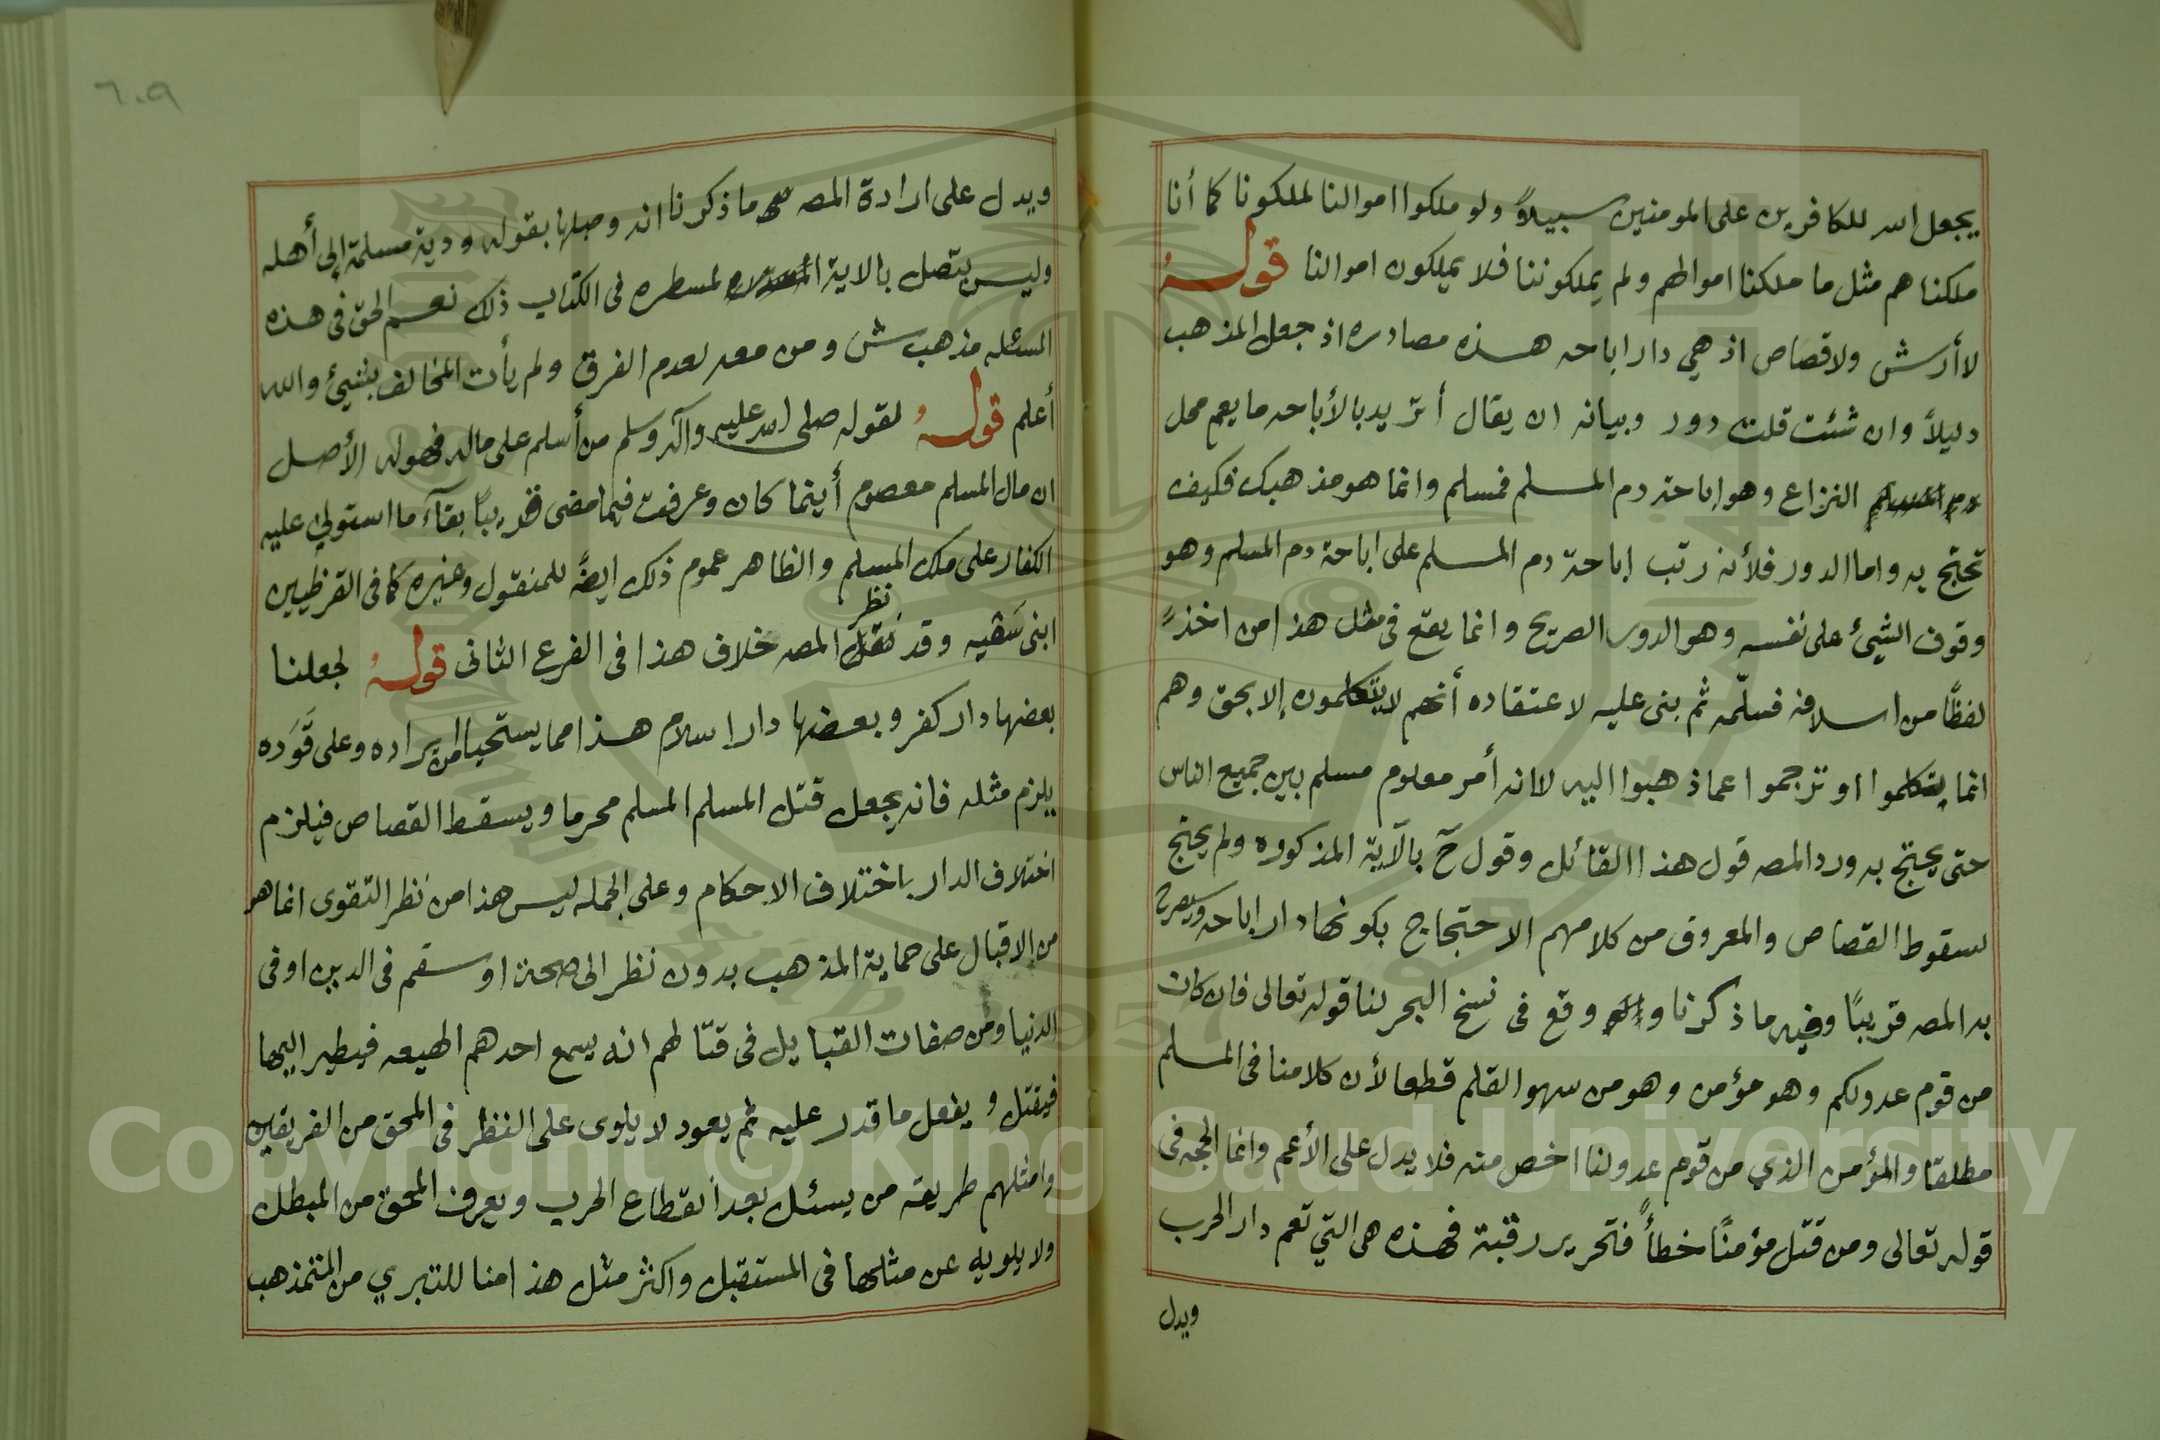 يجعل الله للكافرين على المومنين سبيلاً ولو ملكوا اموالنا لملكونا كما أنا
ملكناهم مثل ما ملكنا اموالهم ولم يملكوننا فلا يملكون اموالنا قولهُ
لا أرش ولا قصاص اذ هي دار اباحه هذه مصادره اذ جعل المذهب
دليلاً وان شئت قلت دور وبيانه ان يقال أتريد بالأباحه ما يعم محل
النزاع وهو اباحة دم المسلم فمسلم وانما هو مذهبك فكيف
تحتج به واما الدور فلأنه رتب اباحة دم المسلم على اباحة دم المسلم وهو
وقوف الشيئ على نفسه وهو الدور الصريح وانما يقع في مثل هذا من اخذ
لفظًا من اسلافه فسلّمه ثم بنى عليه لاعتقاده أنهم لا يتكلمون إلا بحق وهم
انما يتكلموا او ترجموا عما ذهبوا اليه لا انه أمر معلوم مسلم بين جميع الناس
حتى يحتج به ورد المصه قول هذا القائل وقول ح بالآية المذكوره ولم يحتج
لسقوط القصاص والمعروف من كلامهم الاحتجاج بكونها دار اباحه وسيصرح
به المصه قريبًا وفيه ما ذكرنا وقع في نسخ البحر لنا قوله تعالى فان كان
من قوم عدو لكم وهو مؤمن وهو من سهو القلم قطعا لأن كلامنا في المسلم
مطلقًا والمؤمن الذي من قوم عدو لنا اخص منه فلا يدل على الأعم وانما الحجه في
قوله تعالى ومن قتل مؤمنًا خطأً فتحرير رقبة فهذه هي التي تعم دار الحرب
ويدل
٦٠٩
ويدل على ارادة المصه ما ذكرنا انه وصلها بقوله ودية مسلمة إلى أهله
وليس يتصل بالاية لمسطره في الكتاب ذلك نعم الحق في هذه
المسئله مذهب ش ومن معه لعدم الفرق ولم يأت المخالف بشيئ والله
أعلم قولهُ لقوله صلى الله عليه وآله وسلم من أسلم على ماله فهو له الأصل
ان مال المسلم معصوم أينما كان وعرفت فيما مضى قريبًا بقآء ما استولى عليه
الكفار على ملك المسلم والظاهر عموم ذلك ايضًا للمنقول وغيره كما في القرظيين
ابنى سَعْيه وقد نظر المصه خلاف هذا في الفرع الثانى قولهُ لجعلنا
بعضها دار كفر وبعضها دار اسلام هذا مما يستحيا من يراده وعلى قَوَده
يلزم مثله فانه يجعل قتل المسلم المسلم محرما ويسقط القصاص فيلزم
اختلاف الدار باختلاف الاحكام وعلى الجمله ليس هذا من نظر التقوى انما هو
من الاقبال على حماية المذهب بدون نظر الى صحة او سقم في الدين او في
الدنيا ومن صفات القبايل في قتالهم انه يسمع احدهم الهيعه فيطير اليها
فيقتل ويفعل ما قدر عليه ثم يعود لا يلوى على النظر في المحق من الفريقين
وامثلهم طريقة من يسئل بعد انقطاع الحرب ويعرف المحق من المبطل
ولا يلويه عن مثلها في المستقبل واكثر مثل هذا منا للتبري من المتمذهب
Copyright © King Saud University
1957